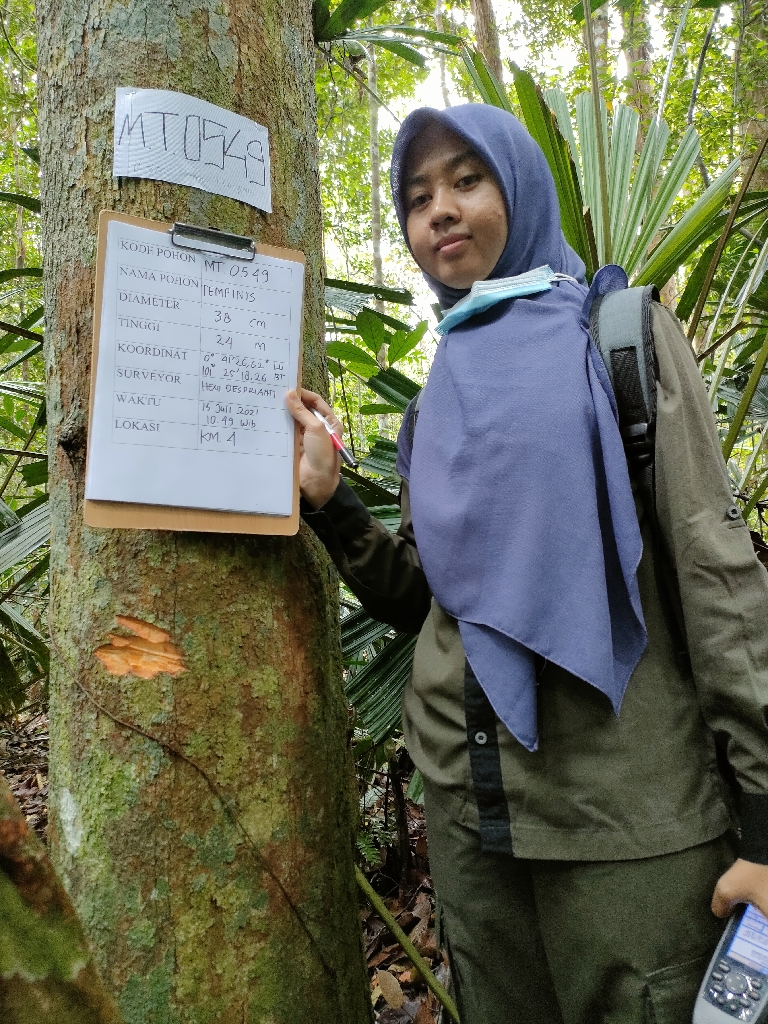 MT.0549
KODE POHON MT 0549
NAMA POHON TEMPINIS
DIAMETER 38 cm
TINGGI 24 m
KOORDINAT 0° 41' 26,62" LU
101° 25' 18,26 BT
SURVEYOR HEXI DESPRIANTI
WAKTU 15 JULI 2021
10.49 WIB
LOKASI KM. 4